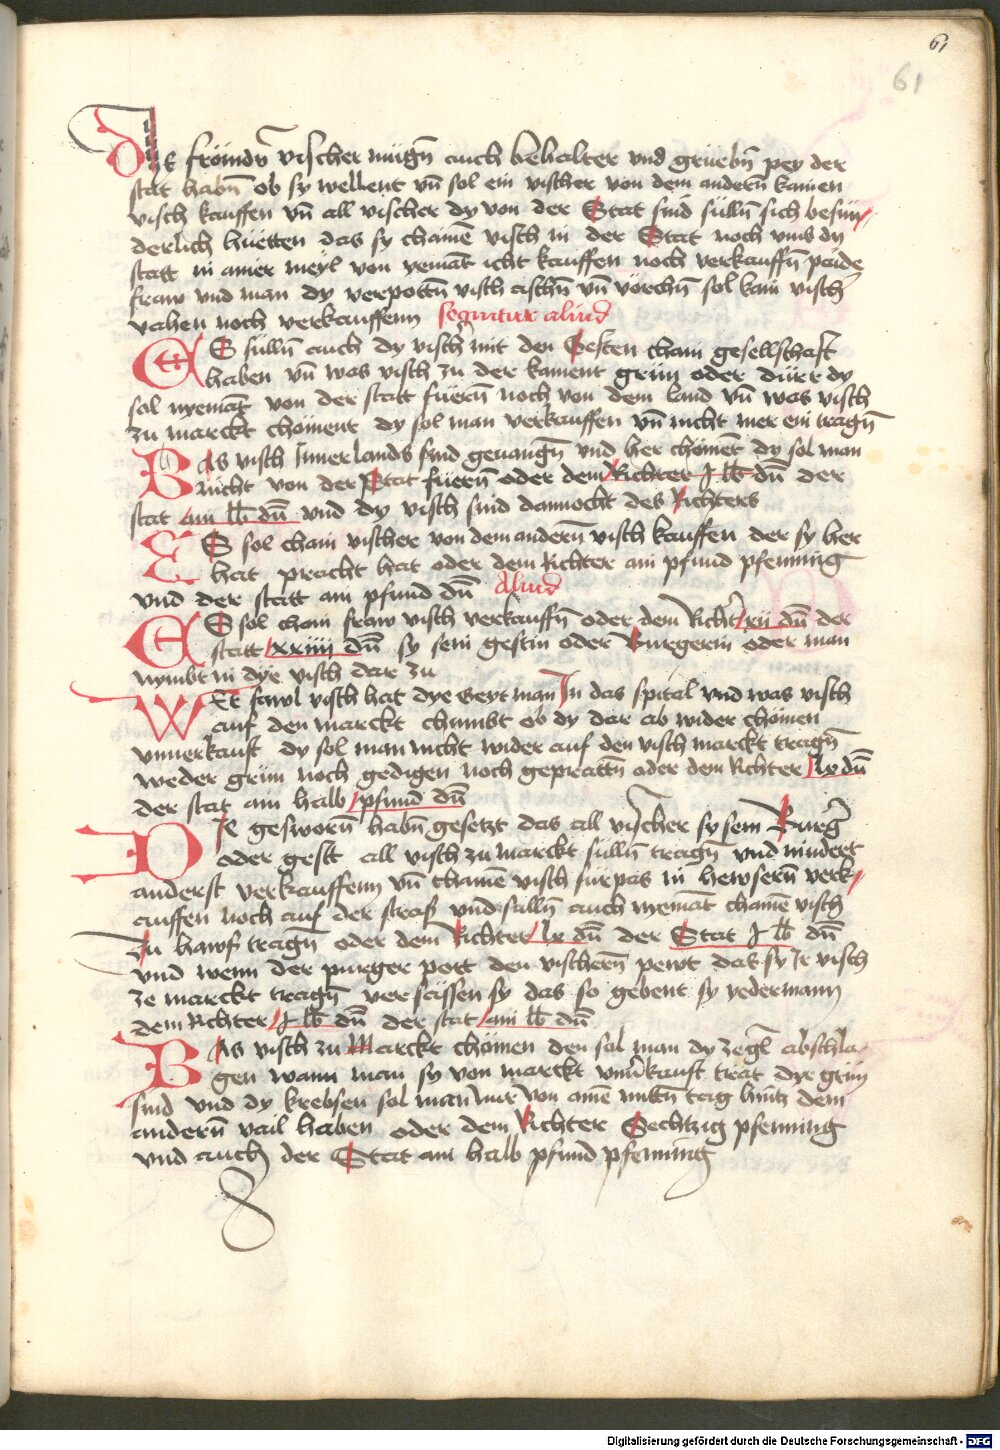 61
61
Die frömdn vischer mügn auch behalter vnd grüebn pey der
stat habn ob sy wellent vn sol ein vischer von dem andern kainen
visch kauffen vn all vischer dy von der Stat sind sülln sich besun/
derlich hüetten das sy chaine visch in der Stat noch vmb dy
statt in ainer meyl von yemat icht kauffen noch verkauffn paide
fraw vnd man dy verpottn visch aschn vn vörchn sol kain visch
vahen noch verkauffenn sequitur aliud
ES sülln auch dy visch mit den Gesten chain gesellschaft
haben vn was visch zu der kament grün oder dürr dy
sol nyemat von der statt füern noch von dem land vn was visch
zu marckt chöment dy sol man verkauffen vn nicht mer ein tragn
WAs visch Inner lands sind geuangn vnd her chöment dy sol man
nicht von der Stat füern oder dem Richter j lb dn der
stat ain lb dn vnd dy visch sind dannocht des Richters
ES sol chain vischer von dem andern visch kauffen der sy her
hat pracht hat oder dem Richter ain pfund pfenning
vnd der statt ain pfund dn Aliud
ES sol chain fraw visch verkauffn oder dem Richt xij dn der
statt xxiiij dn sy sein gestin oder Burgerin oder man
nymbt in dye visch dar zu
WEr fawl visch hat dye geyt man In das spital vnd was visch
auf den marckt chumbt ob dy dar ab wider chömen
vnuerkauft dy sol man nicht wider auf den visch marckt tragn
weder grün noch gedigen noch gepratn oder dem Richter lx dn
der stat ain halb pfund dn
DIe gesworn habn gesetzt das all vischer sy sein Burg
oder gest all visch zu marckt sulln tragn vnd nindert
anderst verkauffenn vn chaine visch fürpas in hewsern verk/
auffen noch auf der strass vnd sulln auch nyemat chaine visch
Zu hawss tragn oder dem Richter lx dn der Stat j lb dn
vnd wenn der purger pott den vischern pewt das sy Ir visch
ze marckt tragn versässen sy das so gebent sy yedermann
dem Richter j lb dn der stat ain lb dn
WAs visch zu Marckt chömen den sol man dy zegl abschla/
gen wann man sy von marckt vnuerkauft trat dye grün
sind vnd dy krebsen sol man nur von aine mittn tag huntz dem
andern vail haben oder dem Richter Sechtzig pfenning
vnd auch der Stat ain halb pfund pfenning
Digitalisierung gefördert durch die Deutsche Forschungsgemeinschaft - DFG